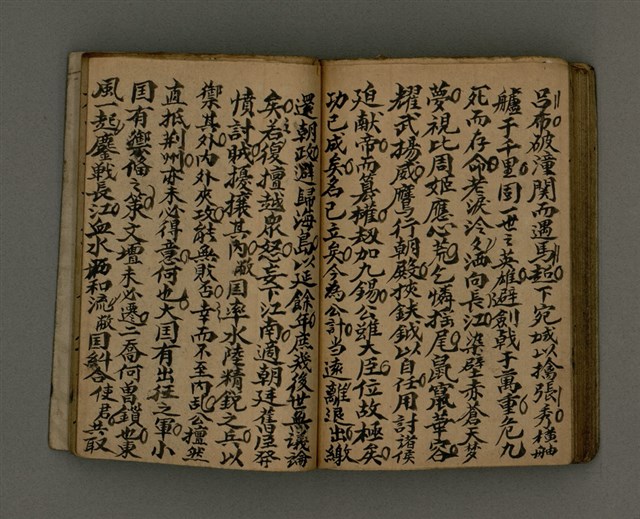 呂布破潼関而遇馬超下宛城以擒張秀橫舳
艫于千里固一世之英雄避劍戟于萬重危九
死而存命老淚泠々洒向長江染壁赤蒼天梦
夢視比周姬應心荒乞憐揺尾鼠竄華容
耀武揚威鷹行朝殿挾鈇鉞以自任用討諸侯
廹献帝而篡權刼加九錫公雖大臣位故極矣
功已成矣名已立矣今為公討当速離退出繳
還朝政避歸海島以延餘年庶幾後世無議論
矣若復擅越衆怒妄下江南適朝廷舊臣發
憤討賊擾攘其内敝国率水陸精銳之兵以
禦其外内外夾攻能無敗否幸而不至内乱公擅然
直抵荆州亦未必得意何也大国有出狂之軍小
国有禦偹之策文壇未必遷二喬何曾鎖也東
風一起鏖戰長江血水和流敝国糾合使君共取